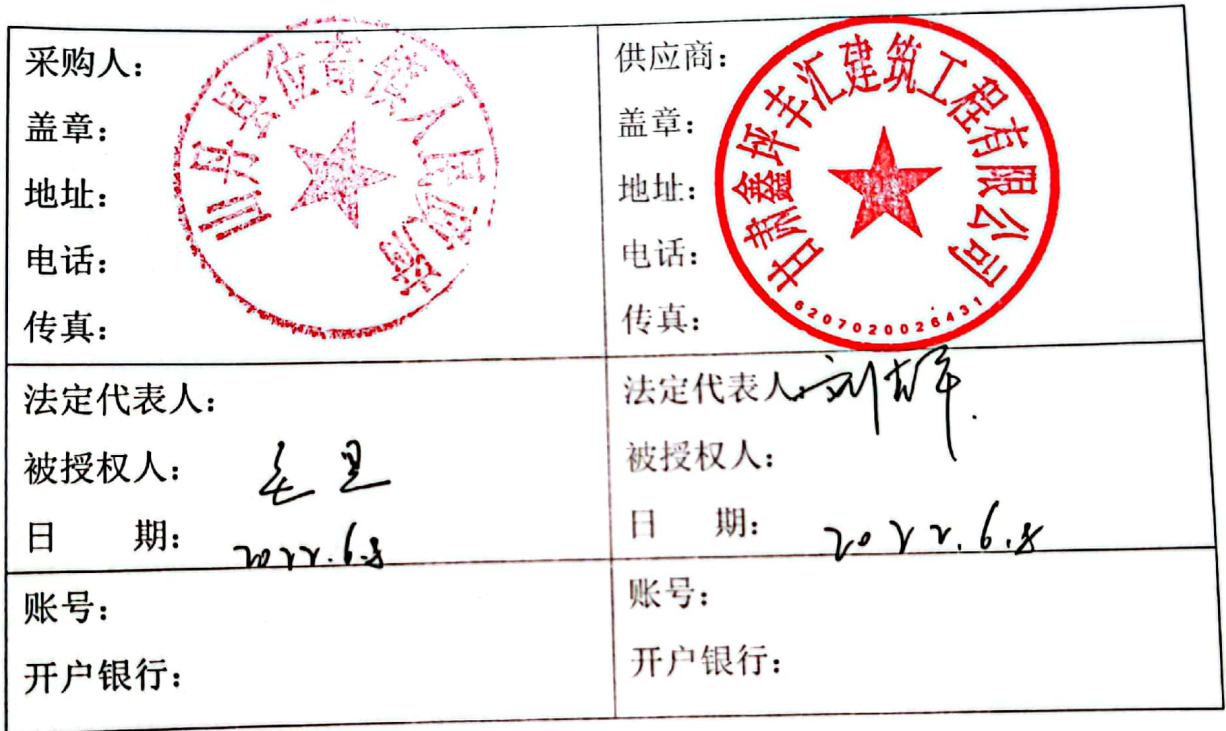 采购人：
盖章：
地址：
电话：
传真：
山丹县位奇镇人民政府
供应商：
盖章：
地址：
电话：
传真：
甘肃鑫坪丰汇建筑工程有限公司
6207020026431
法定代表人：
被授权人：
日 期：2022.6.8
法定代表人：刘
被授权人：
日 期：2022.6.8
账号：
开户银行：
账号：
开户银行：